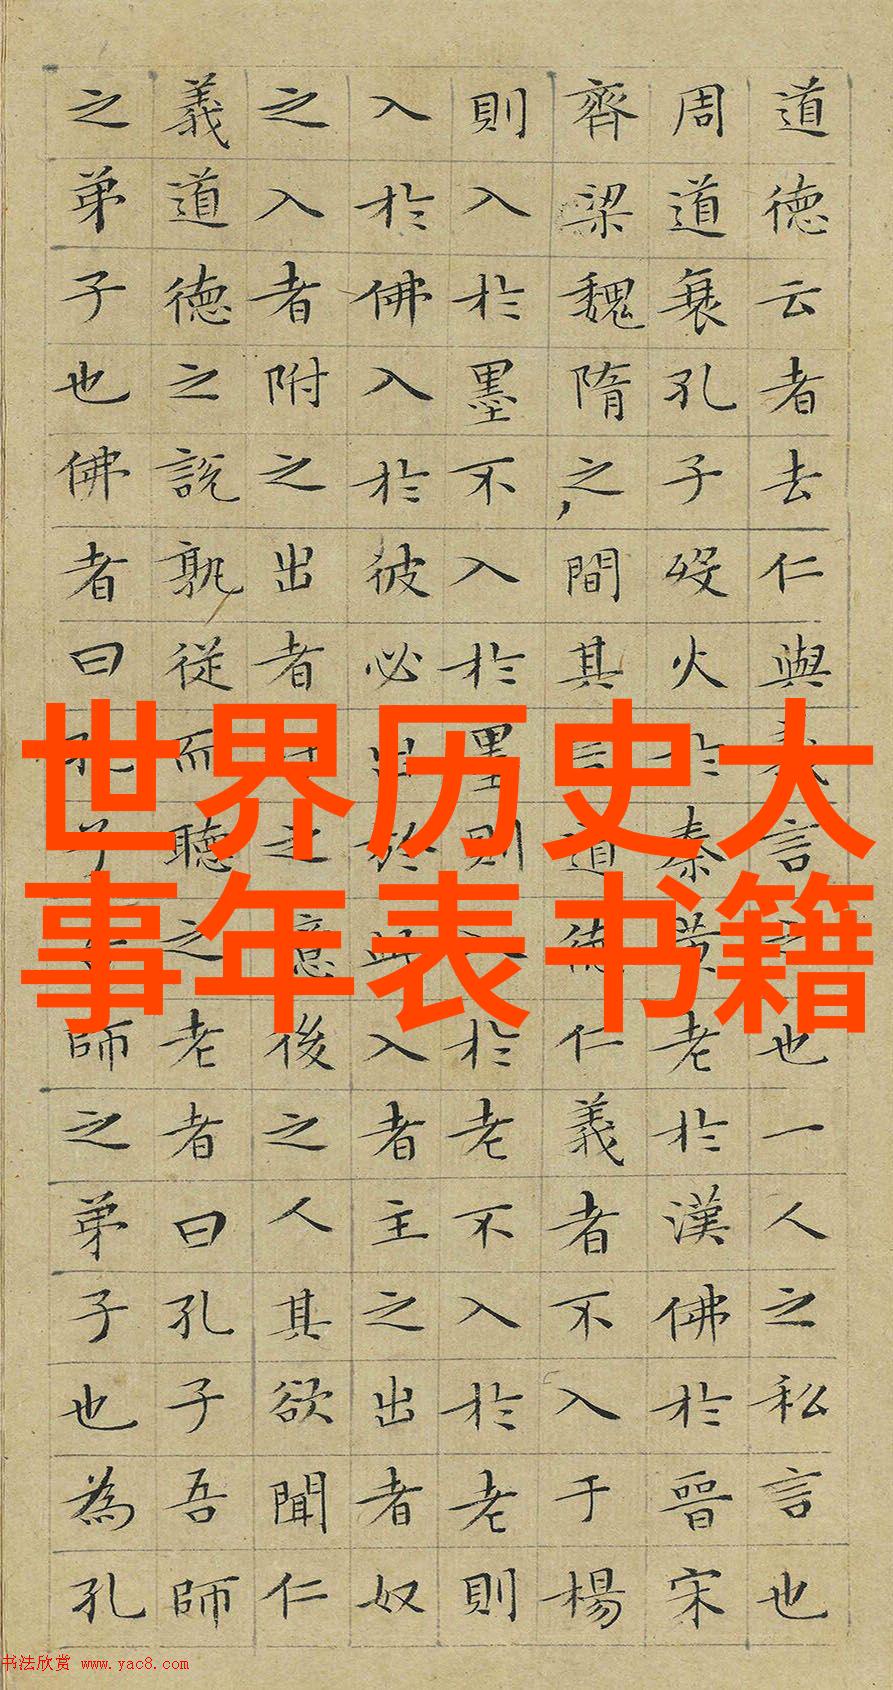 道徳云者去仁與義言之也一人之私言也
周道衰孔子歿火於秦黄老於漢佛於晉宋
齊梁魏隋之間其言道徳仁義者不入于楊
則入於墨不入於墨則入於老不入於老則
入於佛入於彼必出於此入者主之出者奴
之入者附之出者汙之噫後之人其欲聞仁
義道徳之説孰從而聽之老者曰孔子吾師
之弟子也佛者曰孔子吾師之弟子也為孔
世界历史大
事年表书籍
书法欣赏 www.yac8.com